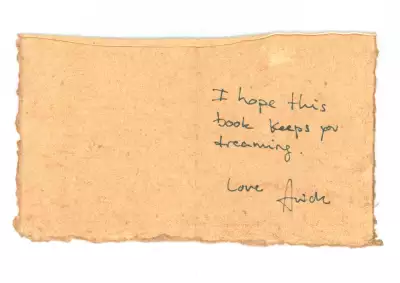 I hope this
book keeps you
dreaming.
Love